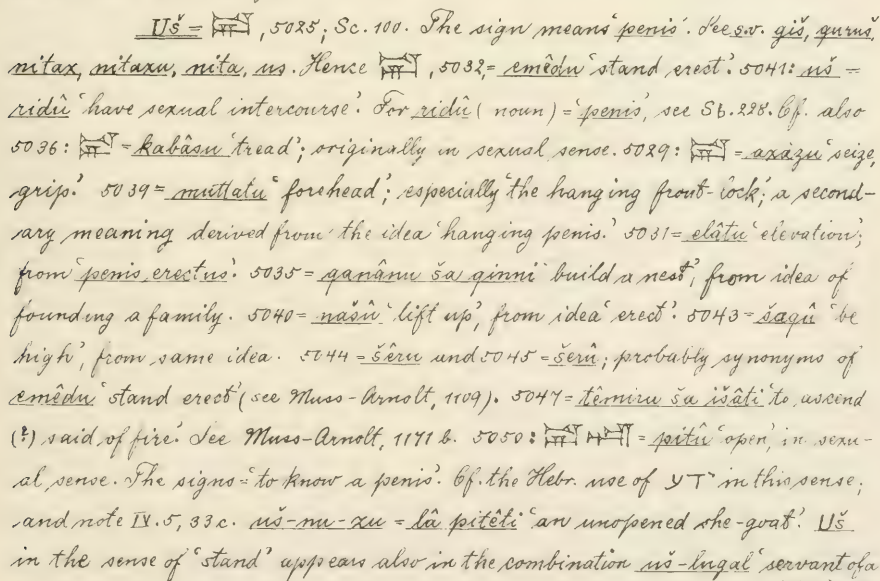 Uš = 𒍑, 5025; Sc. 100. The sign means 'penis'. See s.v. giš, guruš,
nitax, nitaxu, nita, us. Hence 𒍑, 5032, = emêdu 'stand erect'. 5041: uš =
ridû 'have sexual intercourse'. For ridû (noun) = 'penis', see Sb. 228. Cf. also
5036: 𒍑 = kabâsu 'tread'; originally in sexual sense. 5029: 𒍑 = axâzu 'seize,
grip.' 5039 = muttatu 'forehead'; especially 'the hanging front-lock'; a second-
ary meaning derived from the idea 'hanging penis.' 5031 = elâtu 'elevation';
from 'penis erectus'. 5035 = qanânu ša qinni 'build a nest', from idea of
founding a family. 5040 = našû 'lift up', from idea 'erect'. 5043 = šaqû 'be
high', from same idea. 5044 = šêru und 5045 = šerû; probably synonyms of
emêdu 'stand erect' (see Muss-Arnolt, 1109). 5047 = têmiru ša išâti 'to ascend
(?) said of fire.' See Muss-Arnolt, 1171 b. 5050: 𒍑 = pitû 'open', in sexu-
al sense. The signs = 'to know a penis'. Cf. the Hebr. use of ידע in this sense;
and note IV. 5, 33c. uš-nu-zu = lâ pitêti 'an unopened she-goat.' Uš
in the sense of 'stand' appears also in the combination uš-lugal 'servant of a